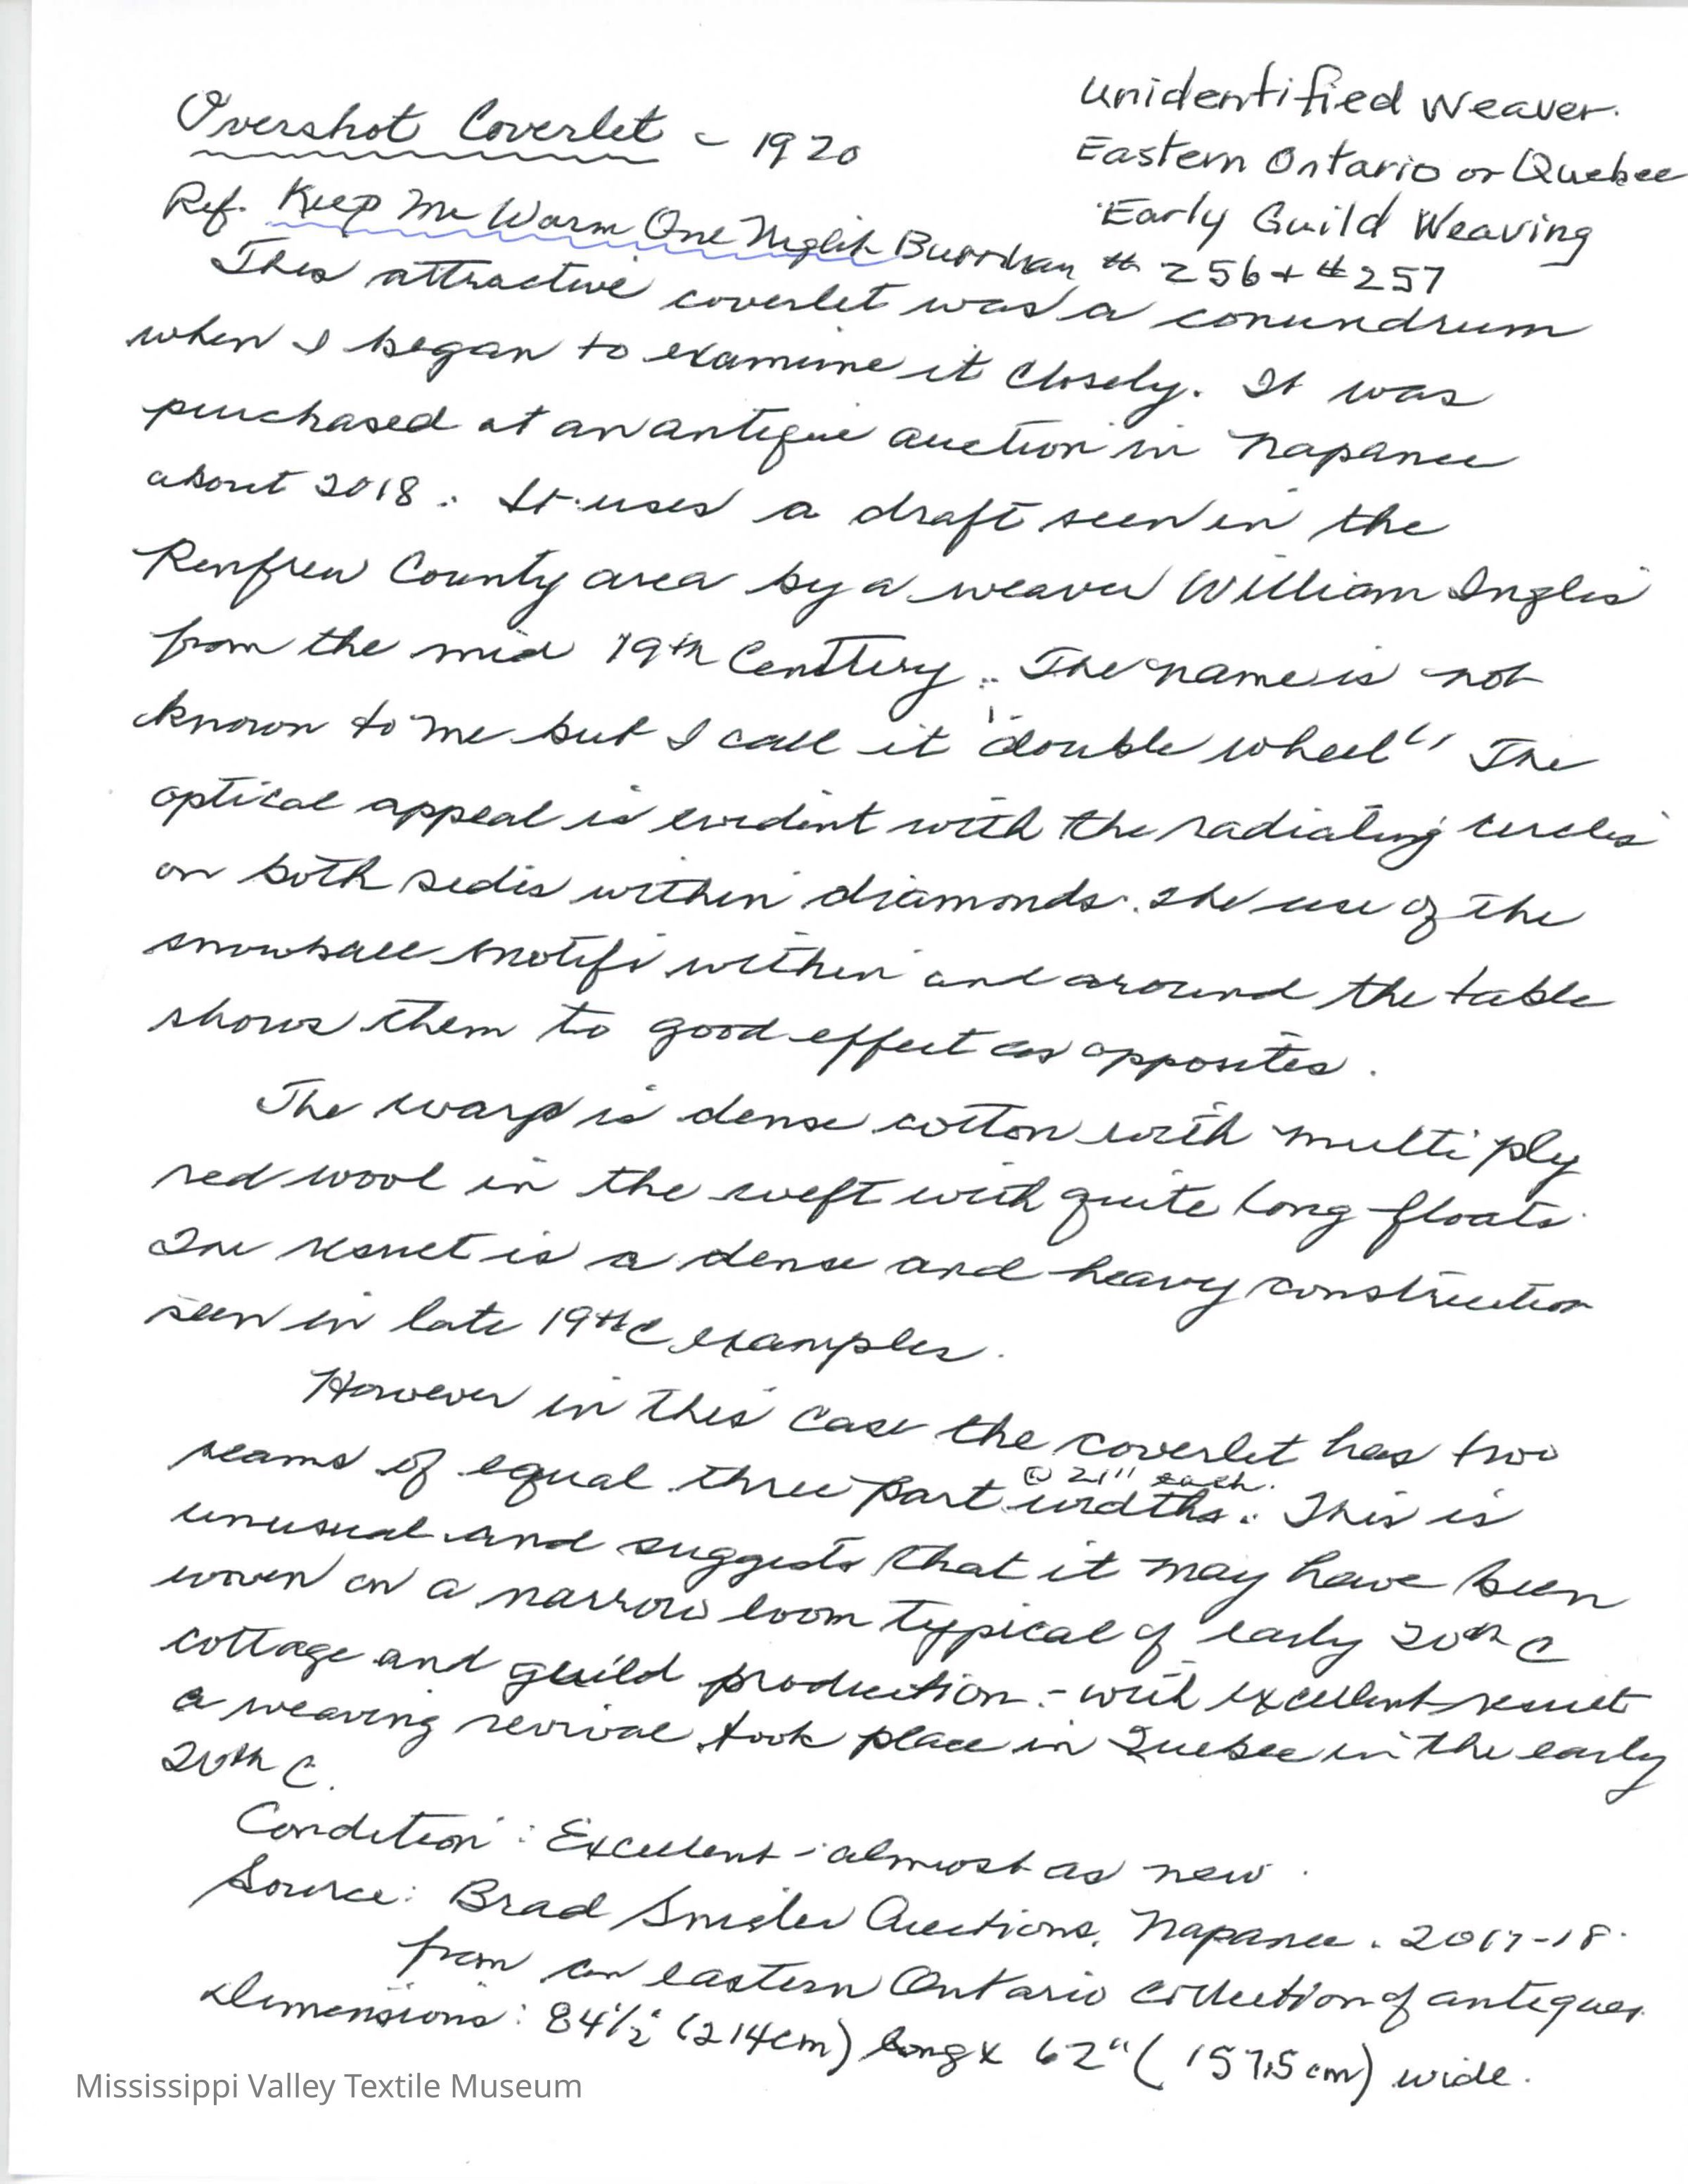 Overshot Coverlet - 1920
Unidentified Weaver.
Eastern Ontario or Quebec
Early Guild Weaving
Ref. Keep Me Warm One Night Burnham # 256 + # 257
This attractive coverlet was a conundrum
when I began to examine it closely. It was
purchased at an antique auction in Napanee
about 2018. It uses a draft seen in the
Renfrew County area by a weaver William Inglis
from the mid 19th Century. The name is not
known to me but I call it "double wheel" The
optical appeal is evident with the radiating circles
on both sides within diamonds. The use of the
snowball motifs within and around the table
shows them to good effect as opposites.
The warp is dense cotton with multi ply
red wool in the weft with quite long floats.
The result is a dense and heavy construction
seen in late 19th C examples.
However in this case the coverlet has two
seams of equal three part widths. @ 21" each. This is
unusual and suggests that it may have been
woven on a narrow loom typical of early 20th C
cottage and guild production - with excellent result
a weaving revival took place in Quebec in the early
20th C.
Condition: Excellent - almost as new.
Source: Brad Snider Auctions, Napanee. 2017-18.
from an eastern Ontario collection of antiques.
Dimensions: 84 1/2" (214cm) long x 62" (157.5cm) wide.
Mississippi Valley Textile Museum